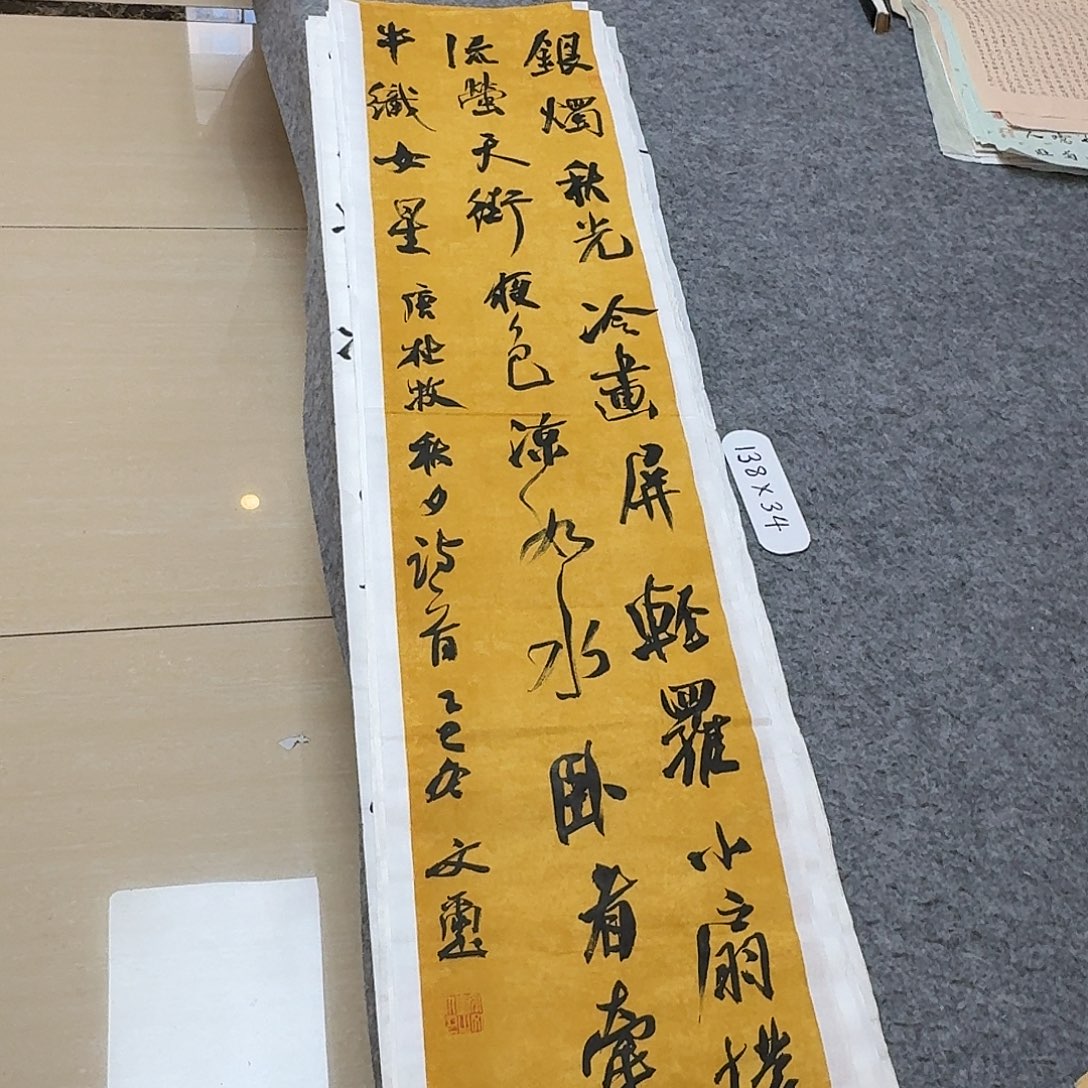 銀燭秋光冷畫屏輕羅小扇撲
流螢天街夜色涼如水卧看牽
牛織女星
唐杜牧秋夕詩一首乙巳冬文璽
138×34